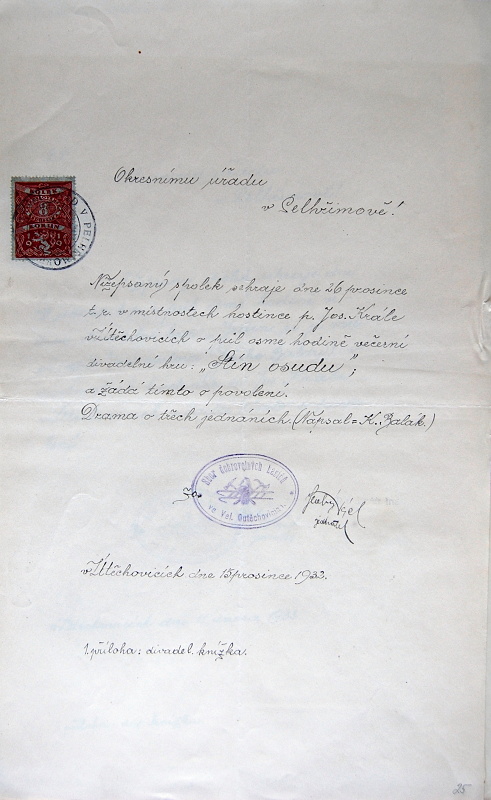 Okresnímu úřadu
v Pelhřimově!
KOLEK
8
KORUN
Nížepsaný spolek sehraje dne 26 prosince
t. r. v místnostech hostince p. Jos. Krále
v Útěchovicích o půl osmé hodině večerní
divadelní hru: „Stín osudu";
a žádá tímto o povolení.
Drama o třech jednáních. (Napsal = K. Balák.)
Sbor dobrovolných hasičů
ve Vel. Outěchovicích
v Útěchovicích dne 15 prosince 1932.
1 příloha: divadel. knížka.
25